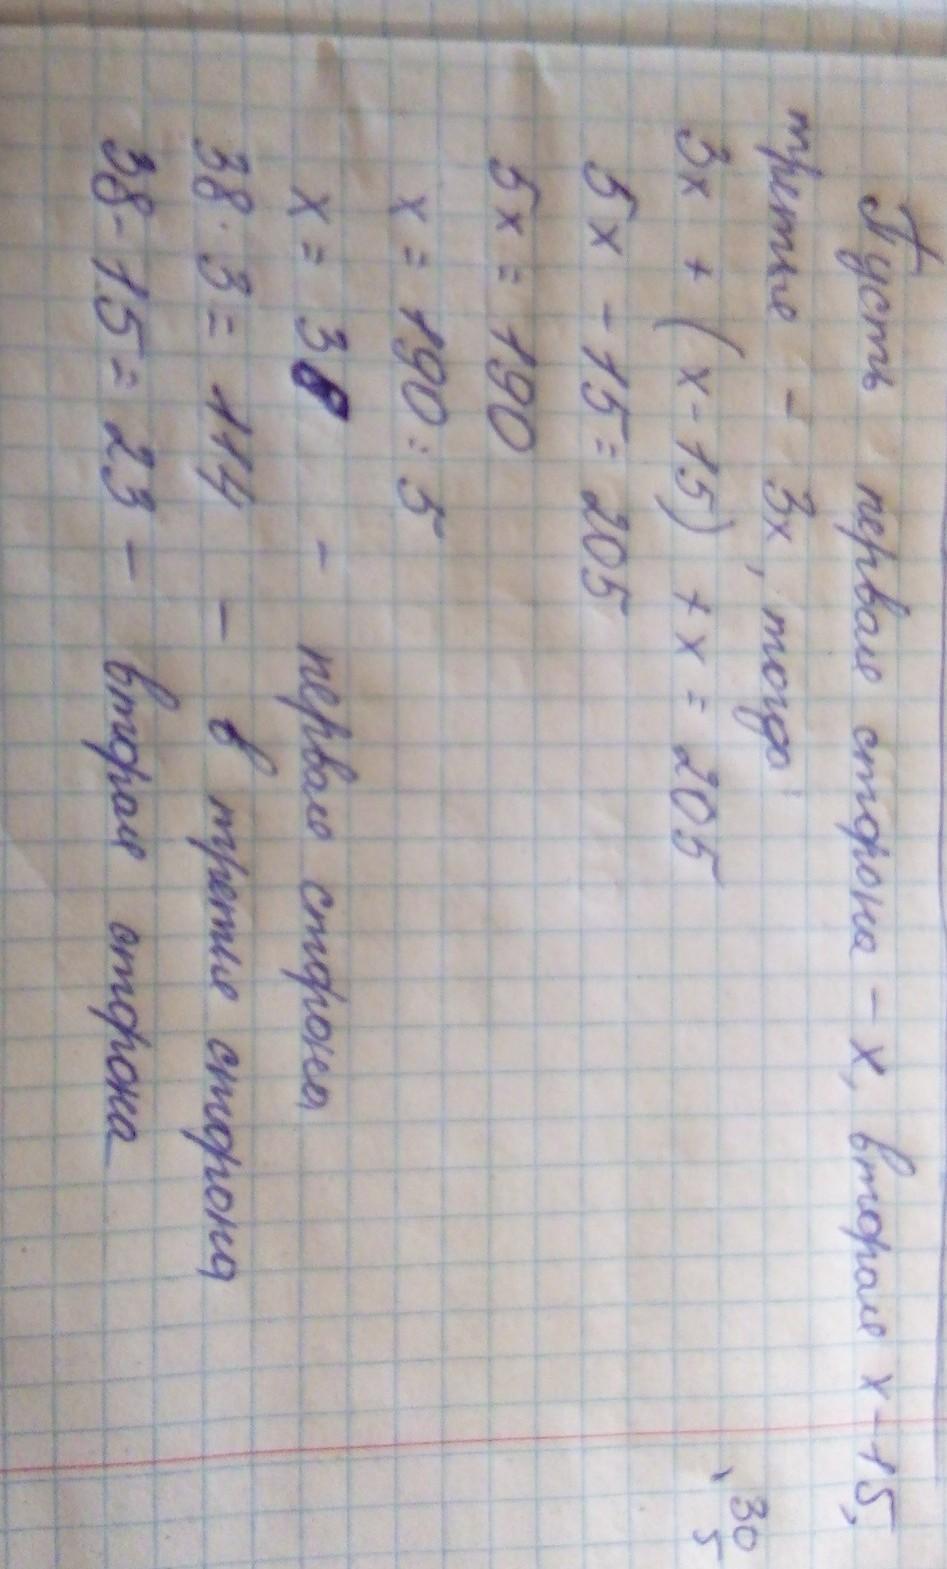 Пусть первая сторона - x, вторая x-15,
третья - 3x, тогда
3x + (x-15) + x = 205
5x - 15 = 205
5x = 190
x = 190 : 5
x = 38 - первая сторона
38 · 3 = 114 - в третья сторона
38 - 15 = 23 - вторая сторона
30
5